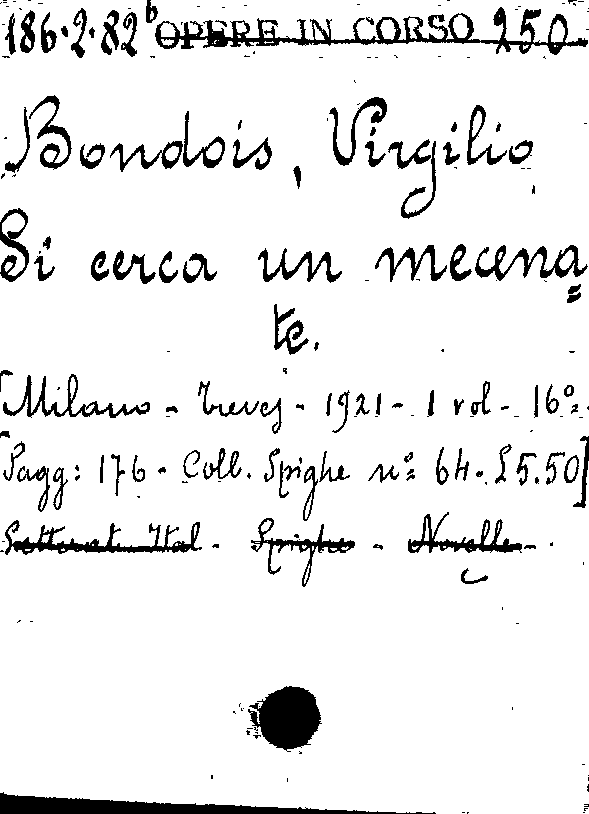 186.2.82 b OPERE IN CORSO 250.
Bondois, Virgilio
Si cerca un mecena=
te.
[Milano - Treves - 1921 - 1 vol - 16º=
Pagg: 176 - Coll. Spighe nº= 64. £5.50]
Letterat. Ital - Spighe - Novelle -